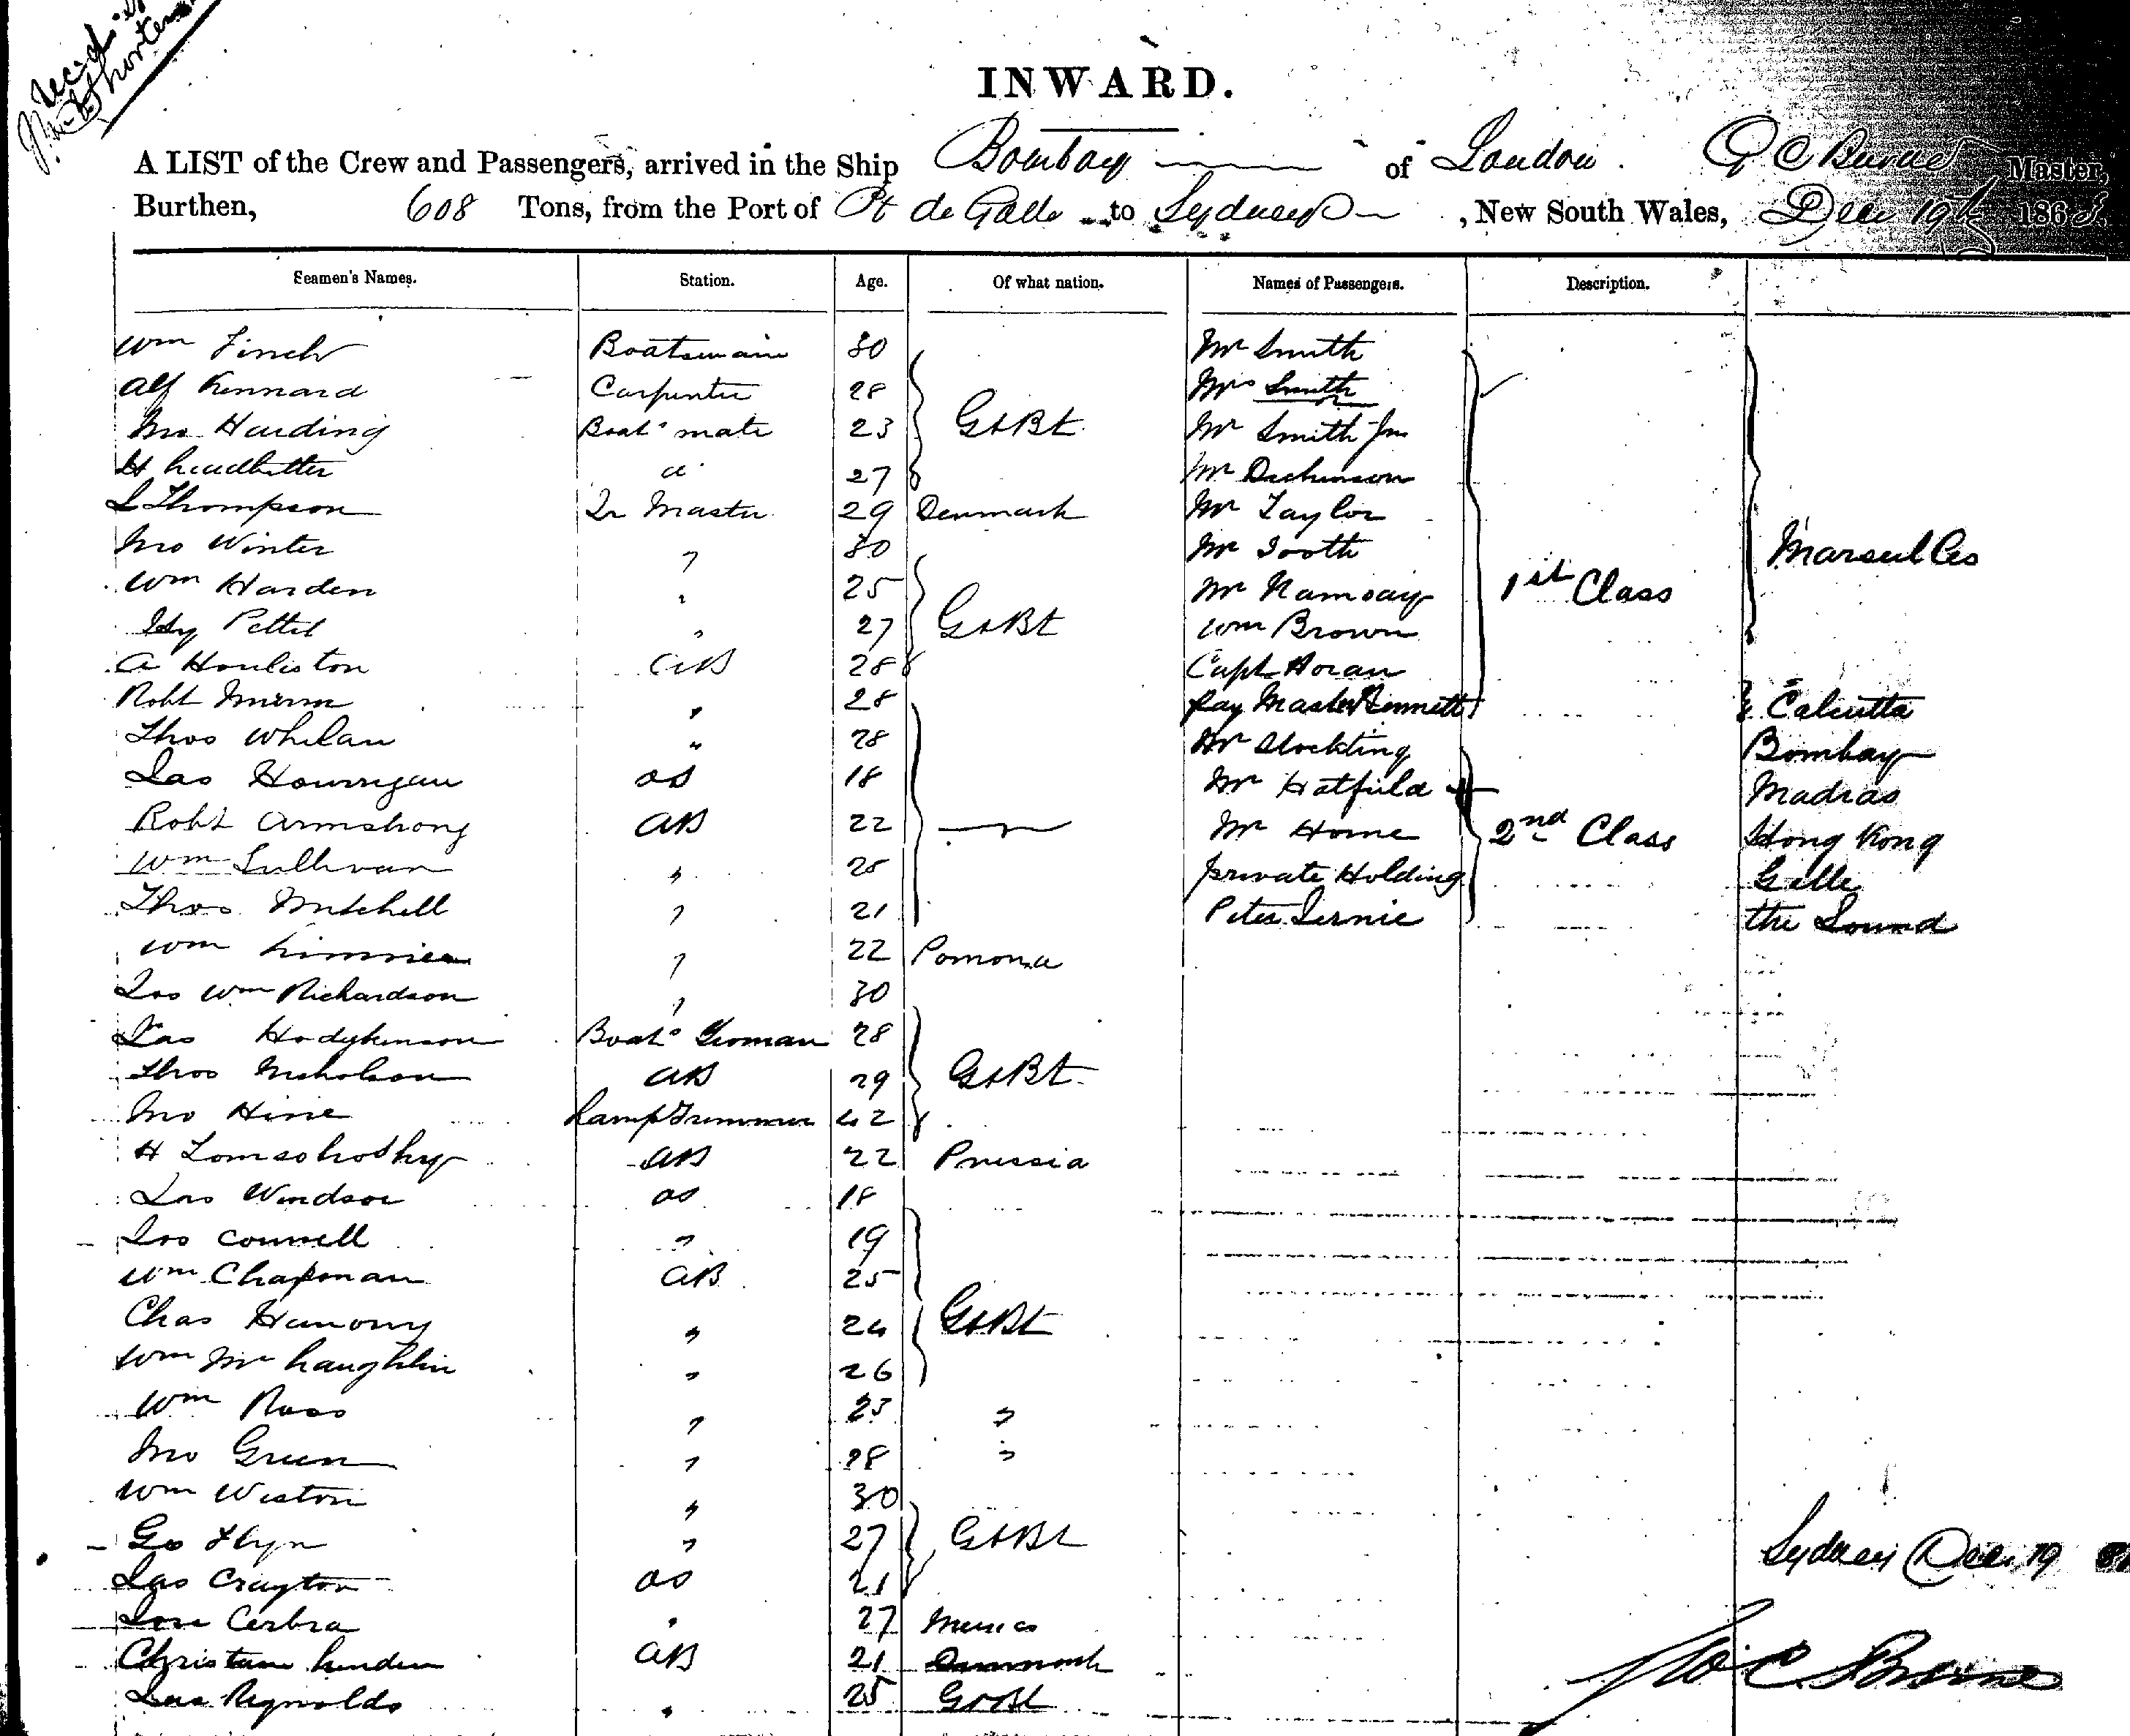 INWARD.
A LIST of the Crew and Passengers, arrived in the Ship Bombay of London. G C Burne Master,
Burthen, 608 Tons, from the Port of Pt de Galle to Sydney, New South Wales, Dec 19th 186
Seamen's Names. Station. Age. Of what nation. Names of Passengers. Description.
Wm Finch Boatswain 30 Mr Smith
Alf Kennard Carpenter 28 Mrs Smith
Jno Harding Boats mate 23 Gt Bt Mr Smith Jnr
H Leadbetter do 27 Mr Dickinson
L Thompson Qr Master 29 Denmark Mr Taylor
Jno Winter " 30 Mr Tooth Marseilles
Wm Harden " 25 Mr Ramsay 1st Class
Hy Pettit " 27 Gt Bt Wm Brown
A Houliston AB 28 Capt Horan
Robt " 28 Pay Master Bennett Calcutta
Thos Whelan " 28 Mr Stockting Bombay
Jas Hourigan OS 18 Mr Hatfield Madras
Robt Armstrong AB 22 Mr Horne 2nd Class Hong Kong
Wm Sullivan " 25 private Holding Galle
Thos Mitchell " 21 Peter the Sound
Wm " 22 Pomona
Jos Wm Richardson " 30
Jas Hodgkinson Boats Yeoman 28
Thos Nicholson AB 29 Gt Bt
Jno Hine Lamp Trimmer 42
H AB 22 Prussia
Jas Windsor OS 18
Jos Connell " 19
Wm Chapman AB 25
Chas " 24 Gt Bt
Wm McLaughlin " 26
Wm Ross " 23 "
Jno Green " 28 "
Wm Weston " 30
Geo Flyn " 27 Gt Bt Sydney Dec 19
Jas Crayton OS 21
Jose Cerbra " 27
Christian AB 21 Denmark
Jas Reynolds " 25 Gt Bt